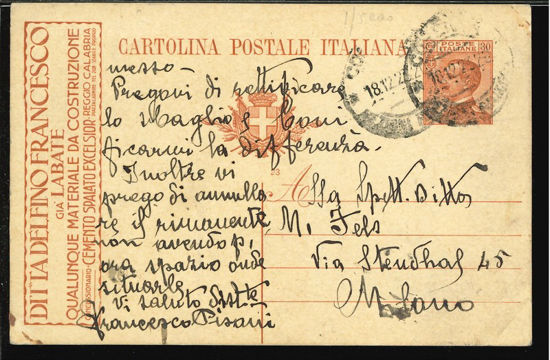 CARTOLINA POSTALE ITALIANA
DITTA DELFINO FRANCESCO
già LABATE
QUALUNQUE MATERIALE DA COSTRUZIONE
CEMENTO SPALATO EXCELSIOR REGGIO CALABRIA
POSTE ITALIANE 30
18.12.2
messo -
Pregovi di rettificare
lo sbaglio e comu
ficarmi la differenza.
Inoltre vi
prego di annulla
re il rimanente
non avendo p,
ora spazio onde
situarle
Vi saluto
Francesco Pisani
23
A Ssg Spett. Ditta
M. Fels
Via Stendhal 45
Milano